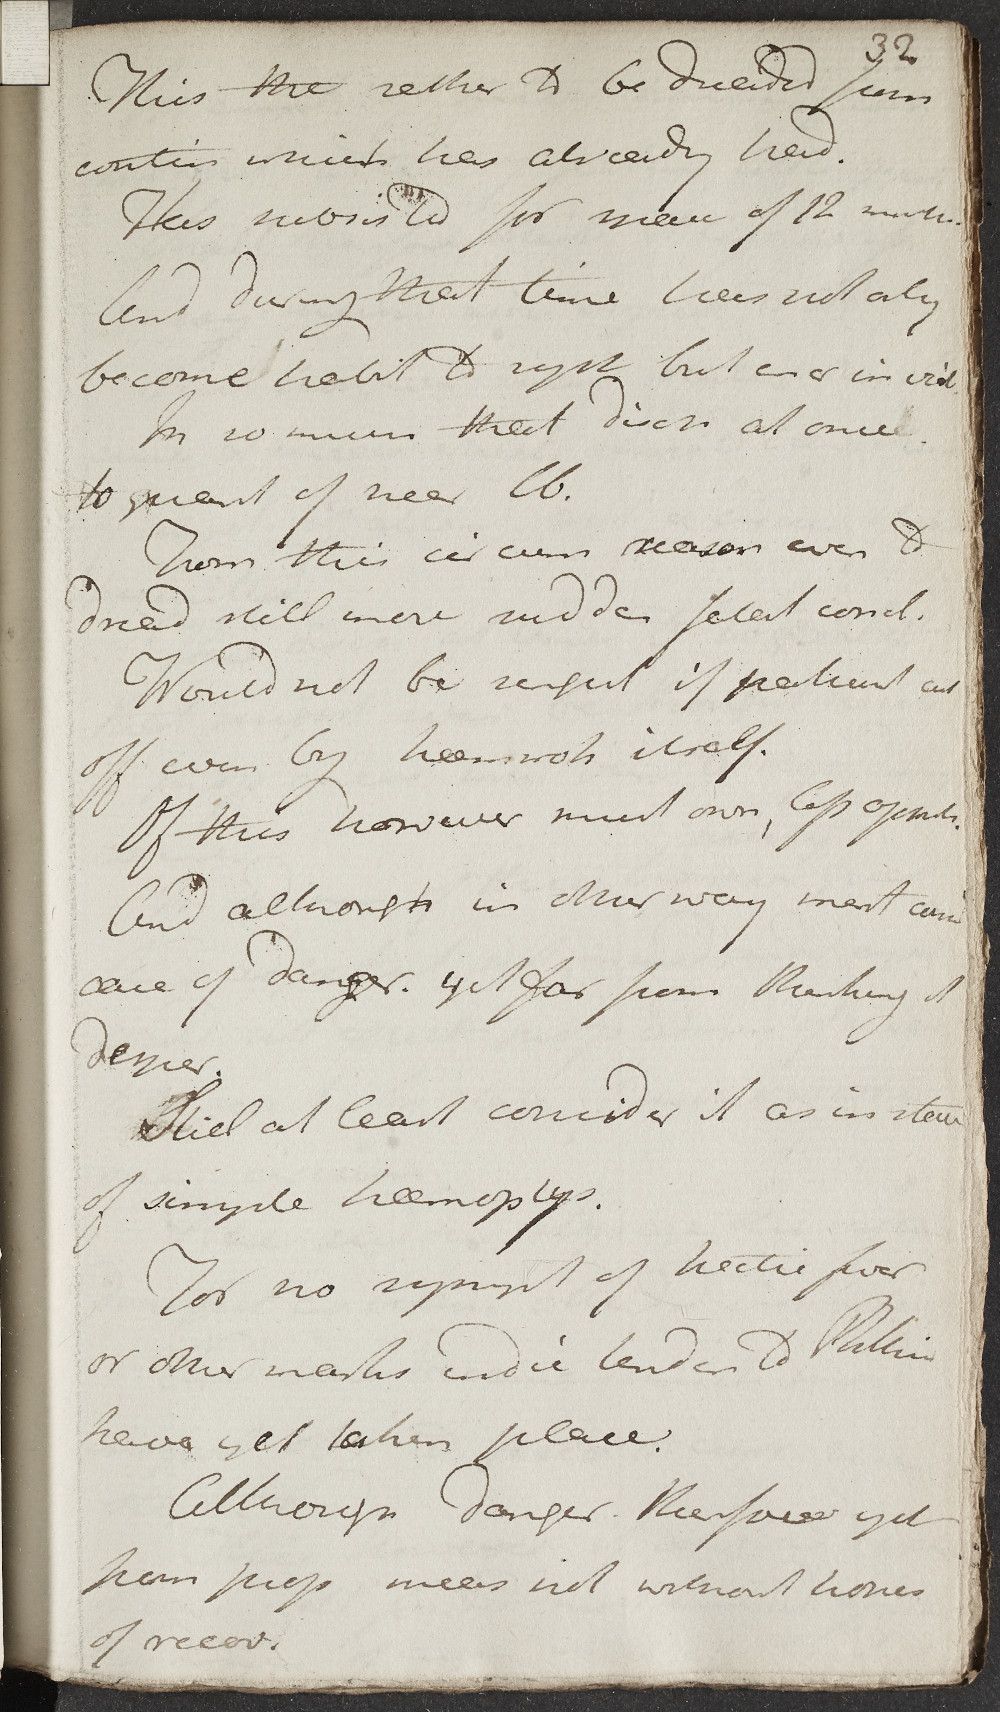 32
This the rather to be dreaded from
contin which has already had.
Has subsisted for space of 12 month.
And during that time has not only
become habit to syst but ever in viol.
In so much that disch at once
to quant of near lb.
From this circum reason even to
dread still more sudden fatal concl.
Would not be surpris if patient cut
off even by haemorrh itself.
Of this however must own, less appreh.
And although in other way must consid
case of danger. yet far from thinking it
desper.
Still at least consider it as in state
of simple haemoptys.
For no sympt of hectic fever
or other marks indic tenden to Phthis
have yet taken place.
Although danger. therefore yet
from prop meas not without hopes
of recov.